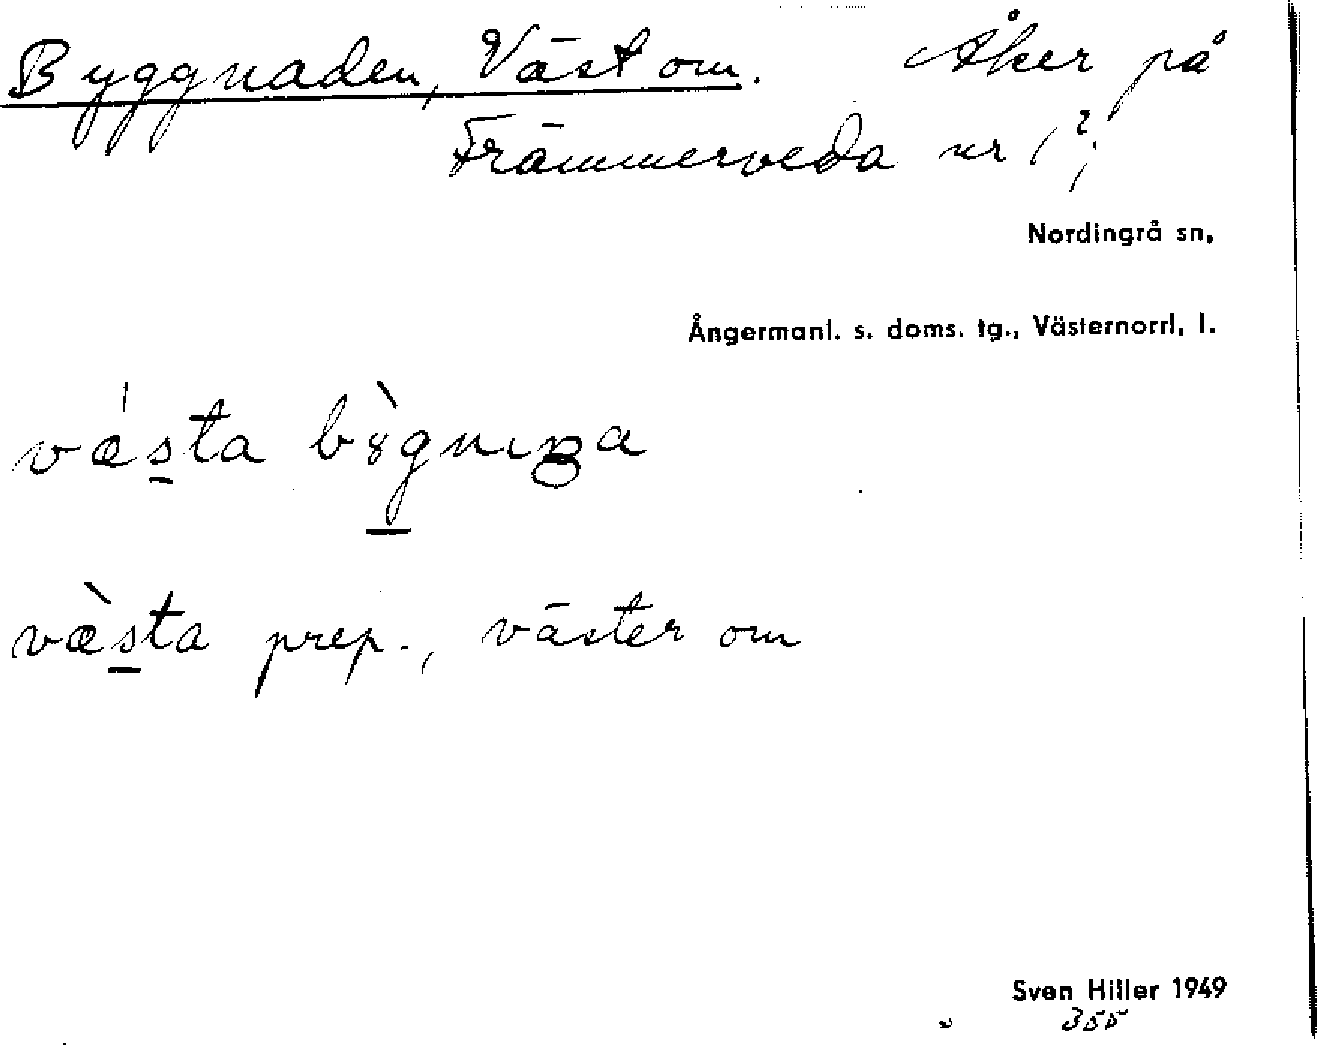 Byggnaden, Väst om. Åker på
Främmerveda nr 1²;
Nordingrå sn,
Ångermanl. s. doms. tg., Västernorrl. l.
væ̀sta by̆̀gnıŋa
væ̀sta prep., väster om
Sven Hiller 1949
355